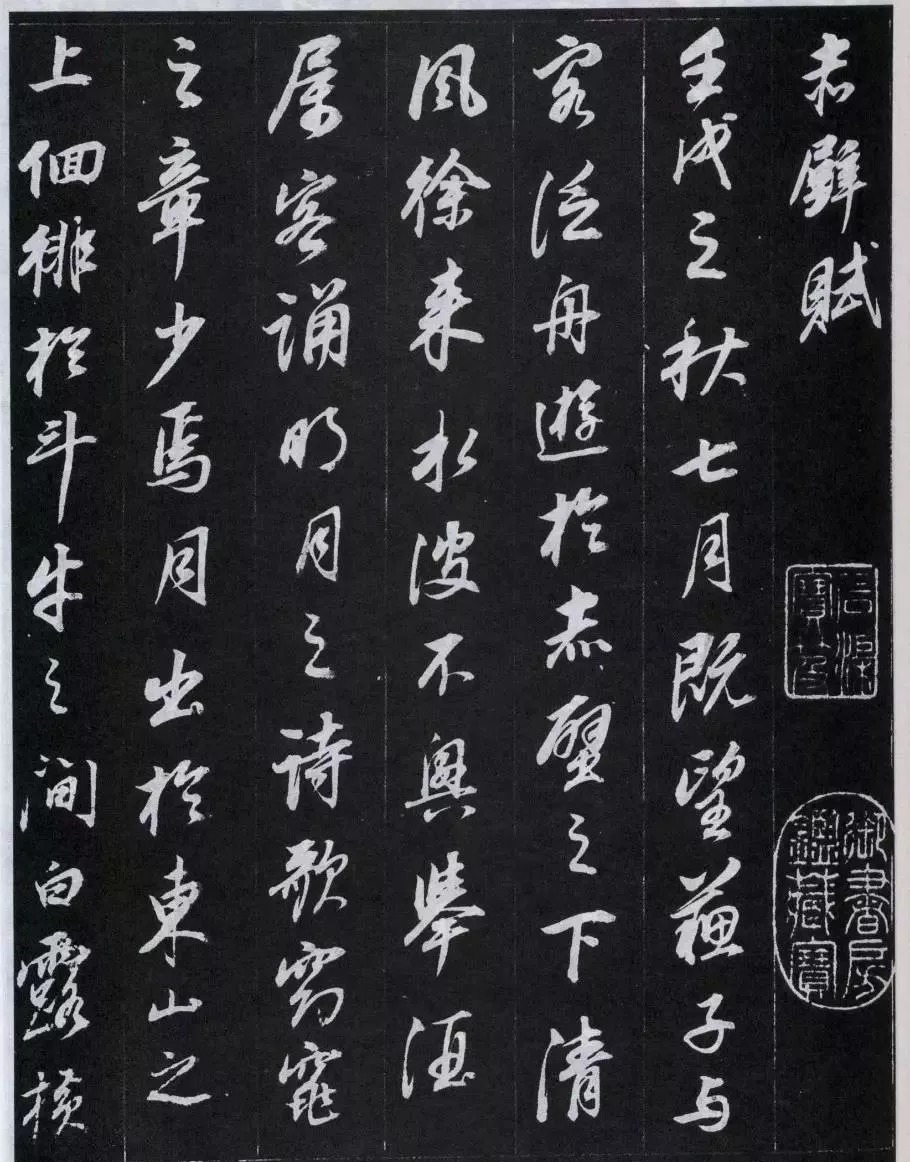 赤壁賦
壬戌之秋七月既望蘇子与
客泛舟遊於赤壁之下清
風徐来水波不興舉酒
属客誦明月之詩歌窈窕
之章少焉月出於東山之
上佪徘於斗牛之間白露横
石渠寶笈
御書房鑑藏寶